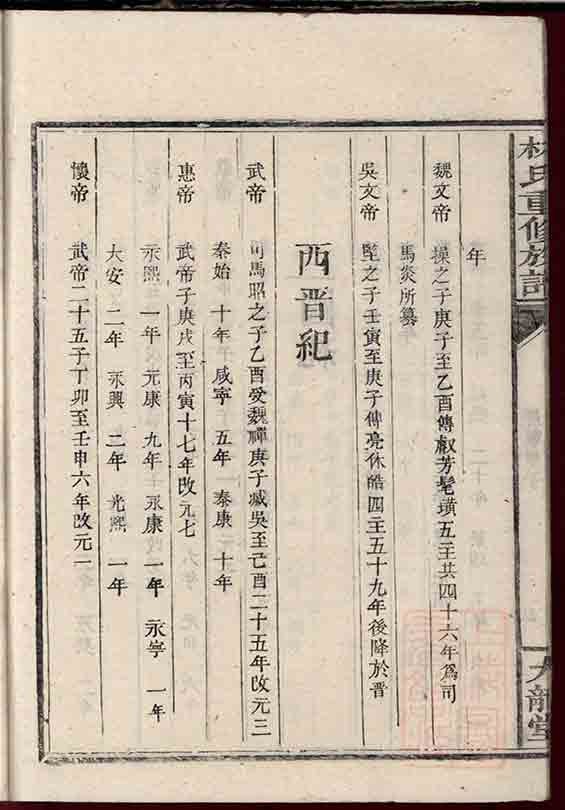 林氏重修族譜
大龍堂
年
魏文帝 操之子庚子至乙酉傳叡芳髦璜五主共四十六年爲司
馬炎所纂
吳文帝 堅之子壬寅至庚子傳亮休皓四主五十九年後降於晉
西晋紀
武帝 司馬昭之子乙酉受魏禪庚子滅吳至己酉二十五年改元三
秦始 十年 咸寧 五年 泰康 十年
惠帝 武帝子庚戌至丙寅十七年改元七
永熙 一年 元康 九年 永康 一年 永寧 一年
大安 二年 永興 二年 光熙 一年
懷帝 武帝二十五子丁卯至壬申六年改元一